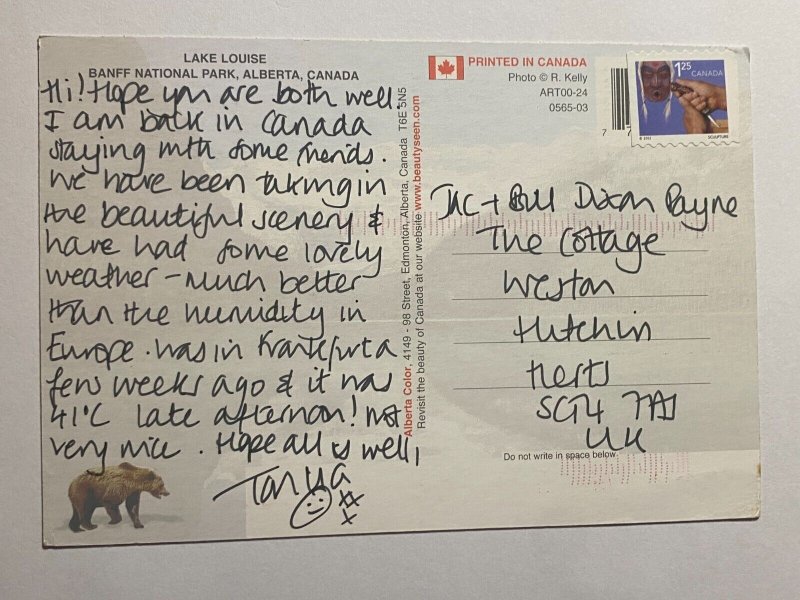 LAKE LOUISE
BANFF NATIONAL PARK, ALBERTA, CANADA
Hi! Hope you are both well.
I am back in Canada
staying with some friends.
We have been taking in
the beautiful scenery &
have had some lovely
weather - much better
than the humidity in
Europe. was in Frankfurt a
few weeks ago & it was
41°C late afternoon! not
very nice. Hope all is well,
Tanya
Alberta Color, 4149 - 98 Street, Edmonton, Alberta, Canada T6E 5N5
Revisit the beauty of Canada at our website www.beautyseen.com
PRINTED IN CANADA
Photo © R. Kelly
ART00-24
0565-03
7
1.25 CANADA
SCULPTURE
+ Bill Dixon Payne
The Cottage
Weston
Hitchin
Herts
SG4
UK
Do not write in space below.